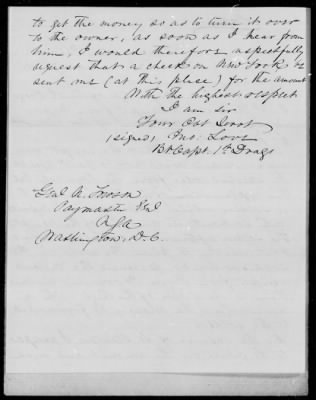 to get the money so as to turn it over
to the owner, as soon as I hear from
him, I would therefore respectfully
request that a check on New York be
sent me (at this place) for the amount
With the highest respect
I am sir
Your Obt Servt
(signed) Jno: Love
Bt Capt. 1st Drags
Genl N. Towson
Paymaster Genl
U.S.A
Washington, D.C.